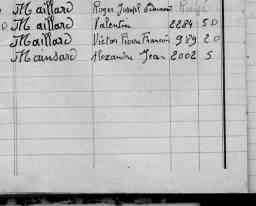 Maillard Roger Joseph
D Maillard Valentin 2284 5 D
Maillard Victor Pierre François 989 2 D
Mainsard Alexandre Jean 2002 5